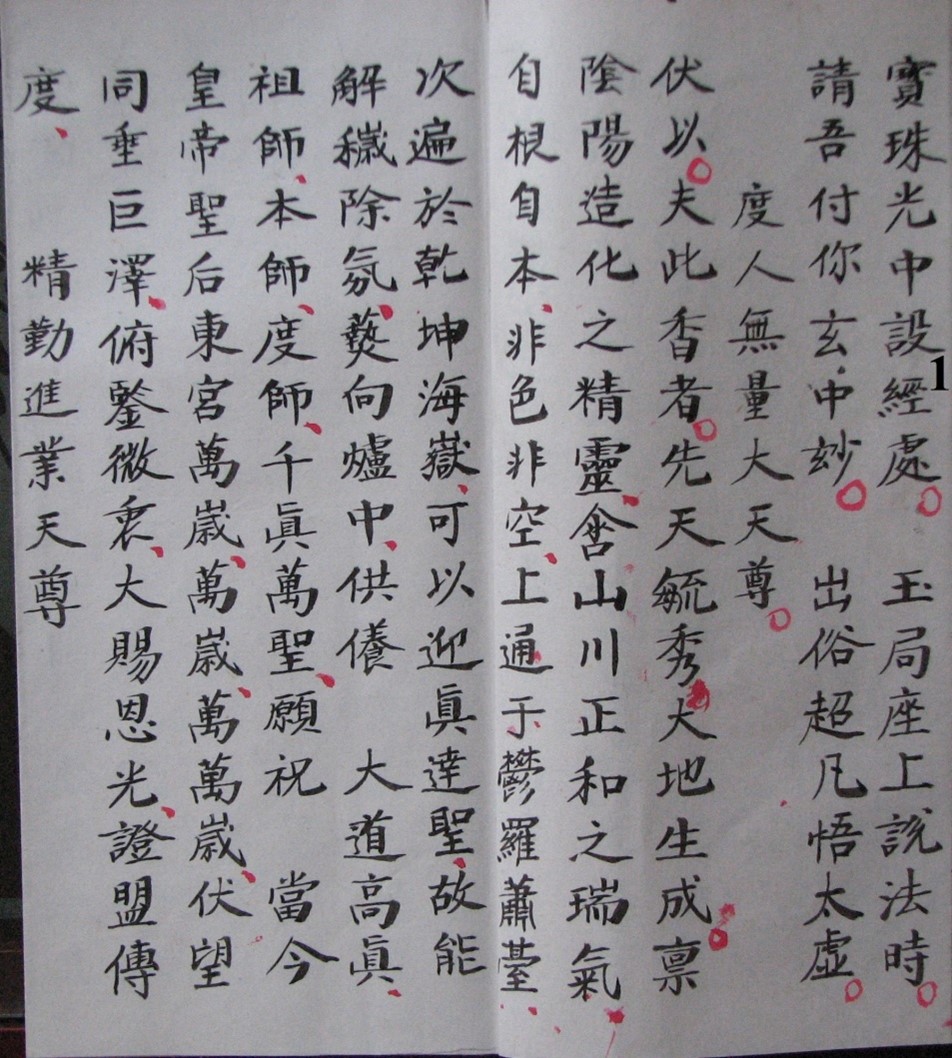 寳珠光中設經處。　玉局座上說法時。
請吾付你玄中妙。　出俗超凡悟太虛。
度人無量大天尊。
伏以。夫此香者。先天毓秀、大地生成。禀
陰陽造化之精靈、含山川正和之瑞氣、
自根自本、非色非空、上通于鬱羅蕭䑓、
次遍於乾坤海嶽、可以迎眞達聖、故能
解穢除氛、爇向爐中、供養　大道高眞、
祖師、本師、度師、千眞萬聖、願祝　當今
皇帝聖后東宮萬嵗、萬嵗、萬萬嵗、伏望
同垂巨澤、俯鑒微衷、大賜恩光、證盟傳
度、　精勤進業天尊
1